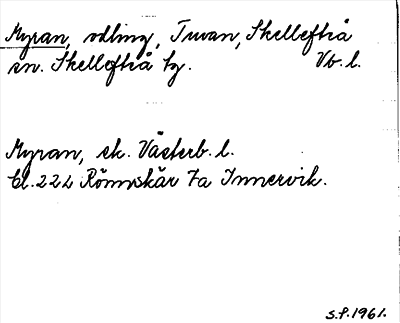 Myran, odling, Tuvan, Skellefteå
sn. Skellefteå tg. Vb. l.
Myran, sk. Västerb. l.
Bl. 222 Rönnskär 7a Innervik.
S.P. 1961.